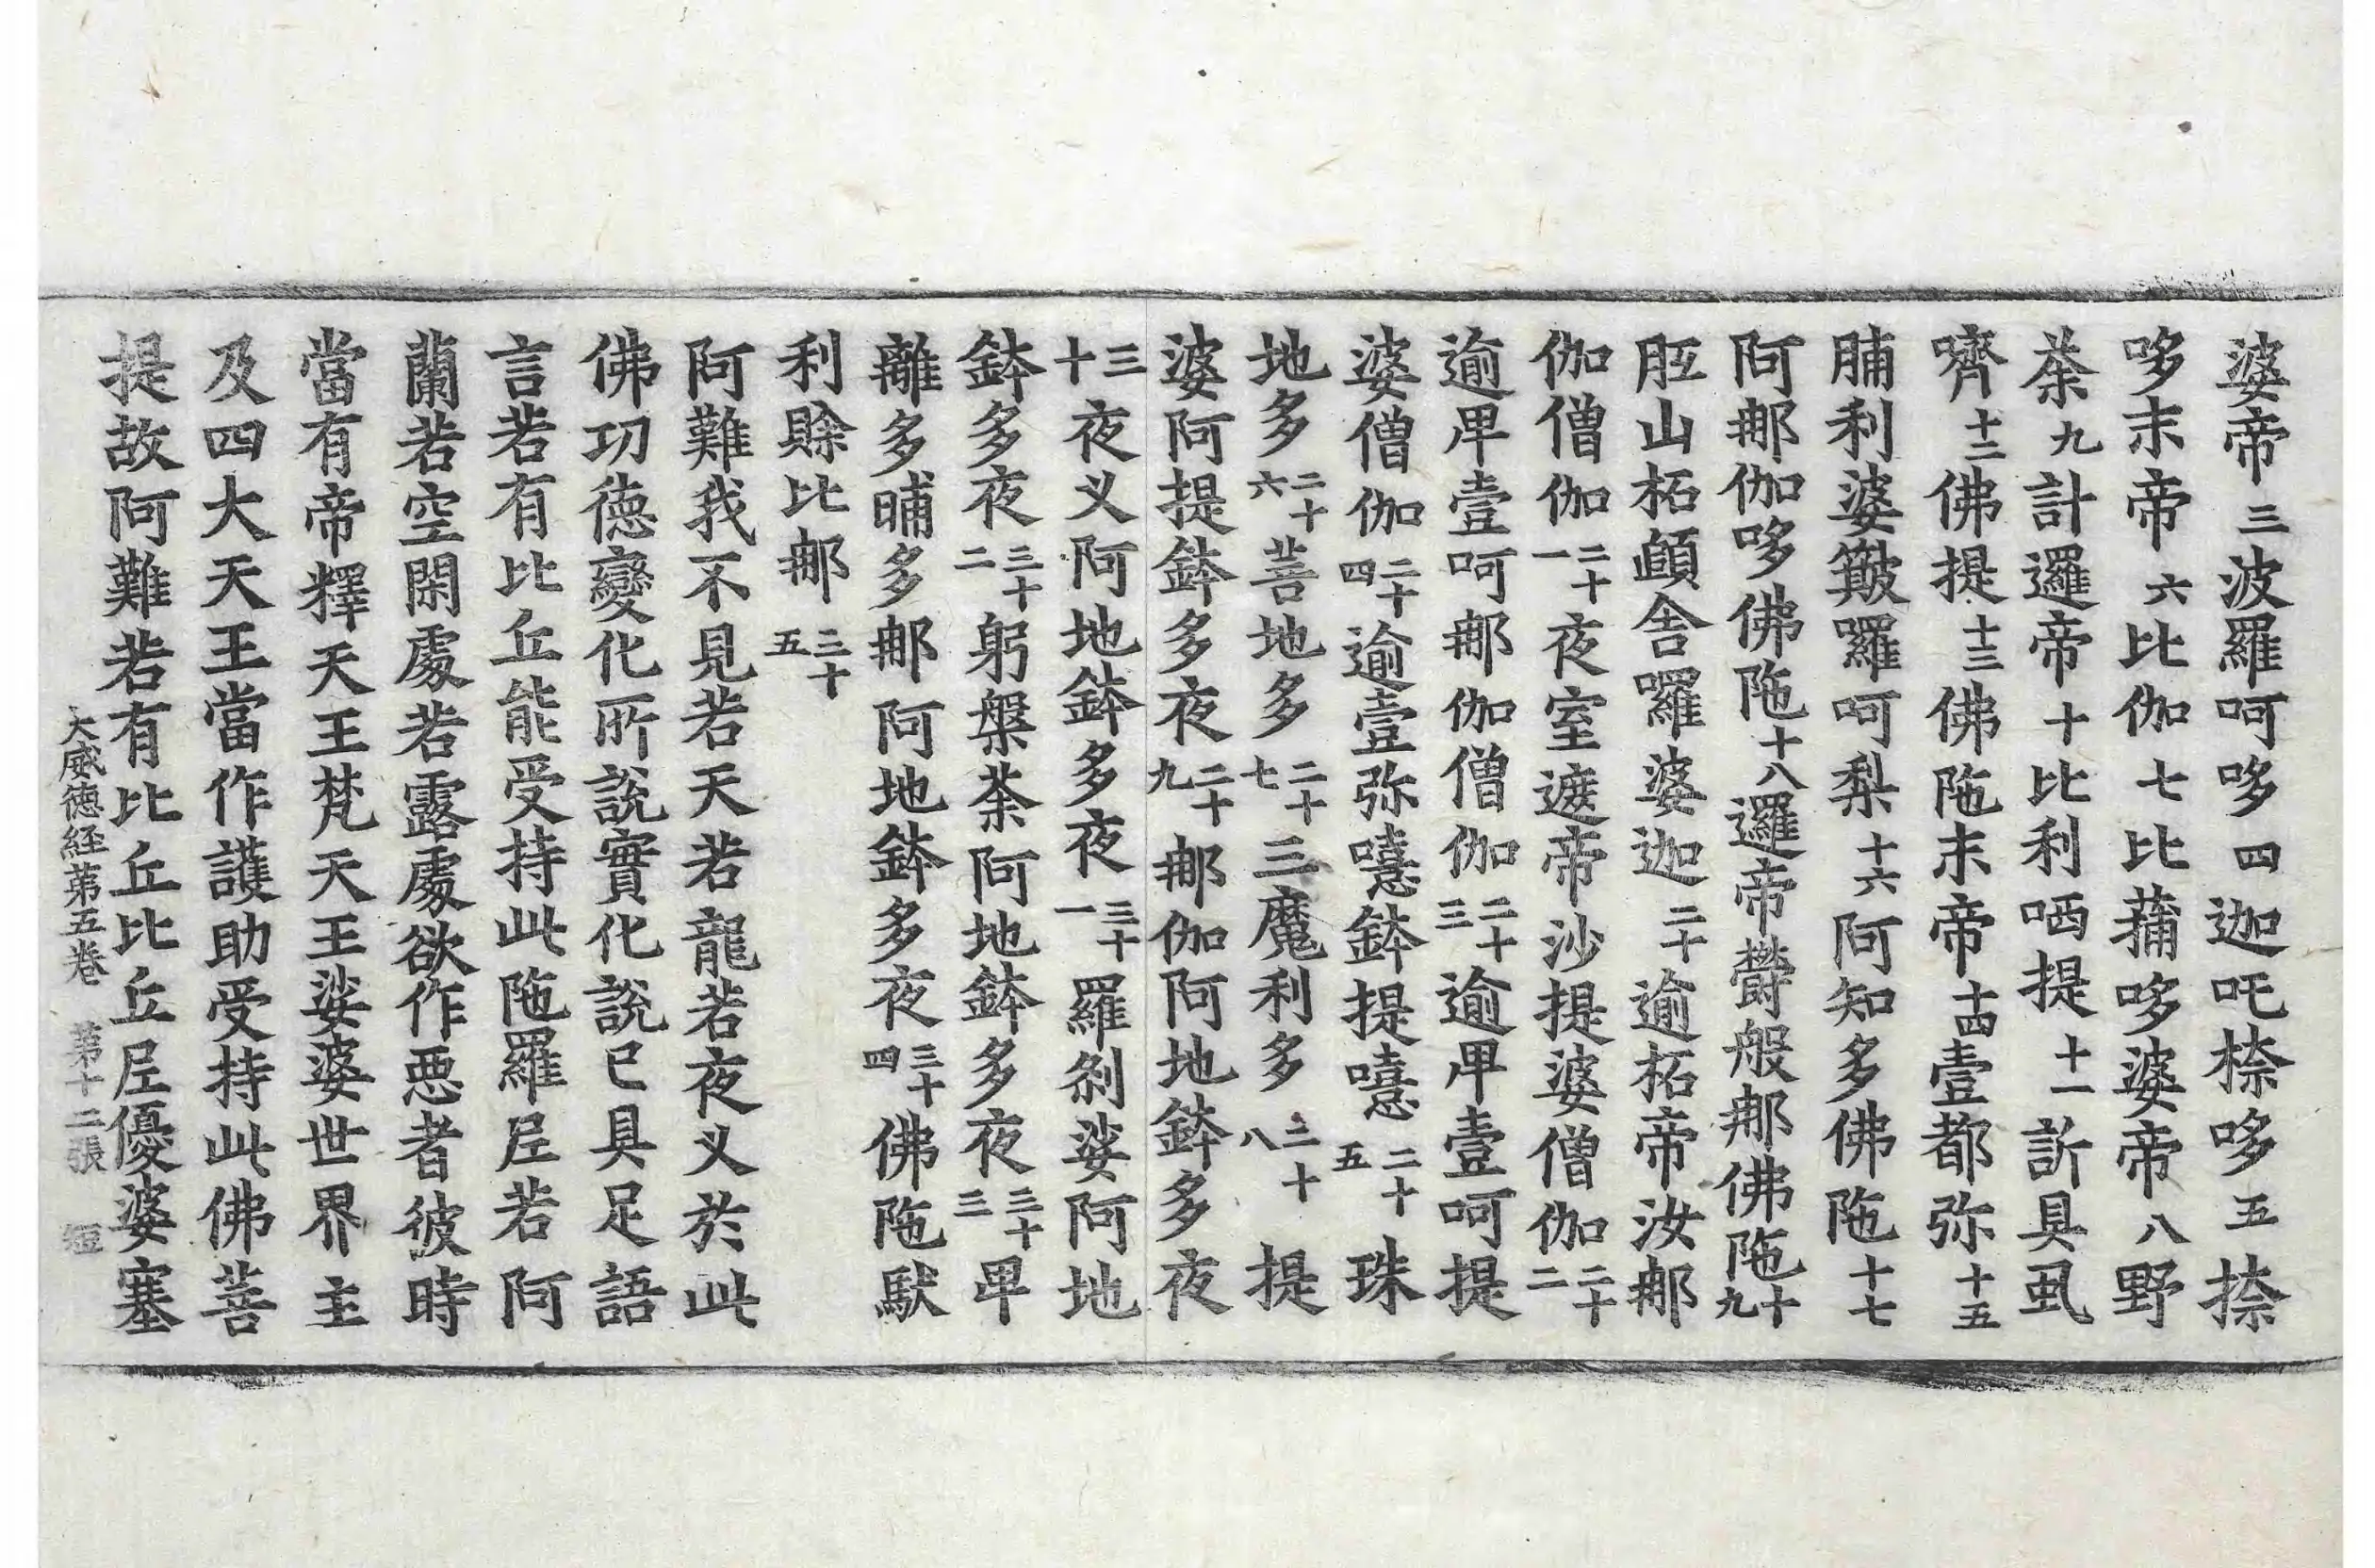 婆帝三波羅呵哆四迦吒㮈哆五㮈
哆末帝六比伽七比蒱哆婆帝八野
荼九計邏帝十比利哂提十一訢具虱
嚌十二佛提十三佛陁末帝十四壹都弥十五
脯利婆羅呵梨十六阿知多佛陁十七
阿那伽哆佛陁十八邏帝欝般那佛陁十九
山柘頗舍囉婆迦二十逾柘帝汝那
伽僧伽二十一夜室遮帝沙提婆僧伽二十二
逾毘壹呵那伽僧伽二十三逾毘壹呵提
婆僧伽二十四逾壹弥嘻鉢提嘻二十五珠
地多二十六菩地多二十七三魔利多二十八提
婆阿提鉢多夜二十九那伽阿地鉢多夜
三十夜叉阿地鉢多夜三十一羅剎娑阿地
鉢多夜三十二躬槃荼阿地鉢多夜三十三毘
離多晡多那阿地鉢多夜三十四佛陁馱
利賒比那三十五
阿難我不見若天若龍若夜叉於此
佛功德變化所說實化說已具足語
言若有比丘能受持此陁羅尼若阿
蘭若空閑處若露處欲作惡者彼時
當有帝釋天王梵天王娑婆世界主
及四大天王當作護助受持此佛菩
提故阿難若有比丘比丘尼優婆塞
大威德経第五卷 第十二張 短